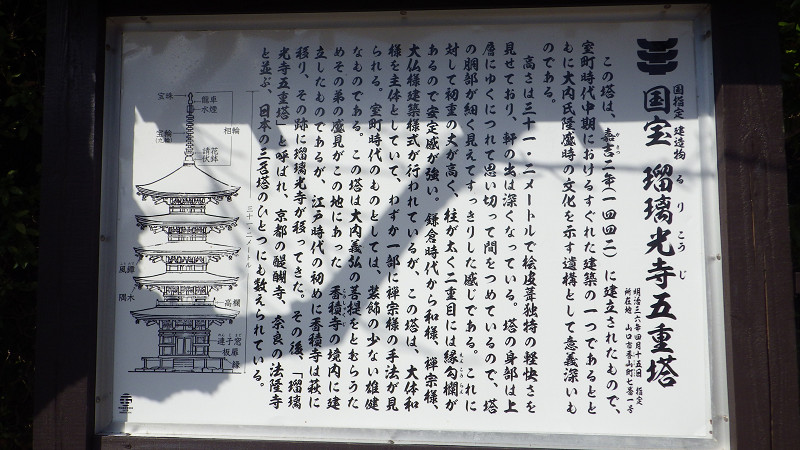 国指定 建造物
国宝 瑠璃光寺五重塔
るりこうじ
明治三六年四月十五日 指定
所在地 山口市香山町七番一号
この塔は、嘉吉二年(一四四二)に建立されたもので、
かきつ
室町時代中期におけるすぐれた建築の一つであるとと
もに大内氏隆盛時の文化を示す遺構として意義深いも
のである。
高さは三十一・二メートルで桧皮葺独特の軽快さを
見せており、軒の出は深くなっている。塔の身部は上
層にゆくにつれて思い切って間をつめているので、塔
の胴部が細く見えてすっきりした感じである。これに
対して初重の丈が高く、柱が太く二重目には縁勾欄が
あるので安定感が強い。鎌倉時代から和様、禅宗様、
大仏様建築様式が行われているが、この塔は、大体和
様を主体としていて、わずか一部に禅宗様の手法が見
られる。室町時代のものとしては、装飾の少ない雄健
なものである。この塔は大内義弘の菩提をとむらうた
めその弟の盛見がこの地にあった香積寺の境内に建
立したものであるが、江戸時代の初めに香積寺は萩に
移り、その跡に瑠璃光寺が移ってきた。その後、「瑠璃
光寺五重塔」と呼ばれ、京都の醍醐寺、奈良の法隆寺
と並ぶ、日本の三名塔のひとつにも数えられている。
宝珠
竜車
水煙
宝輪
(九輪)
相輪
請花
伏鉢
三十一・二メートル
風鐸
隅木
高欄
連子窓
板扉
縁